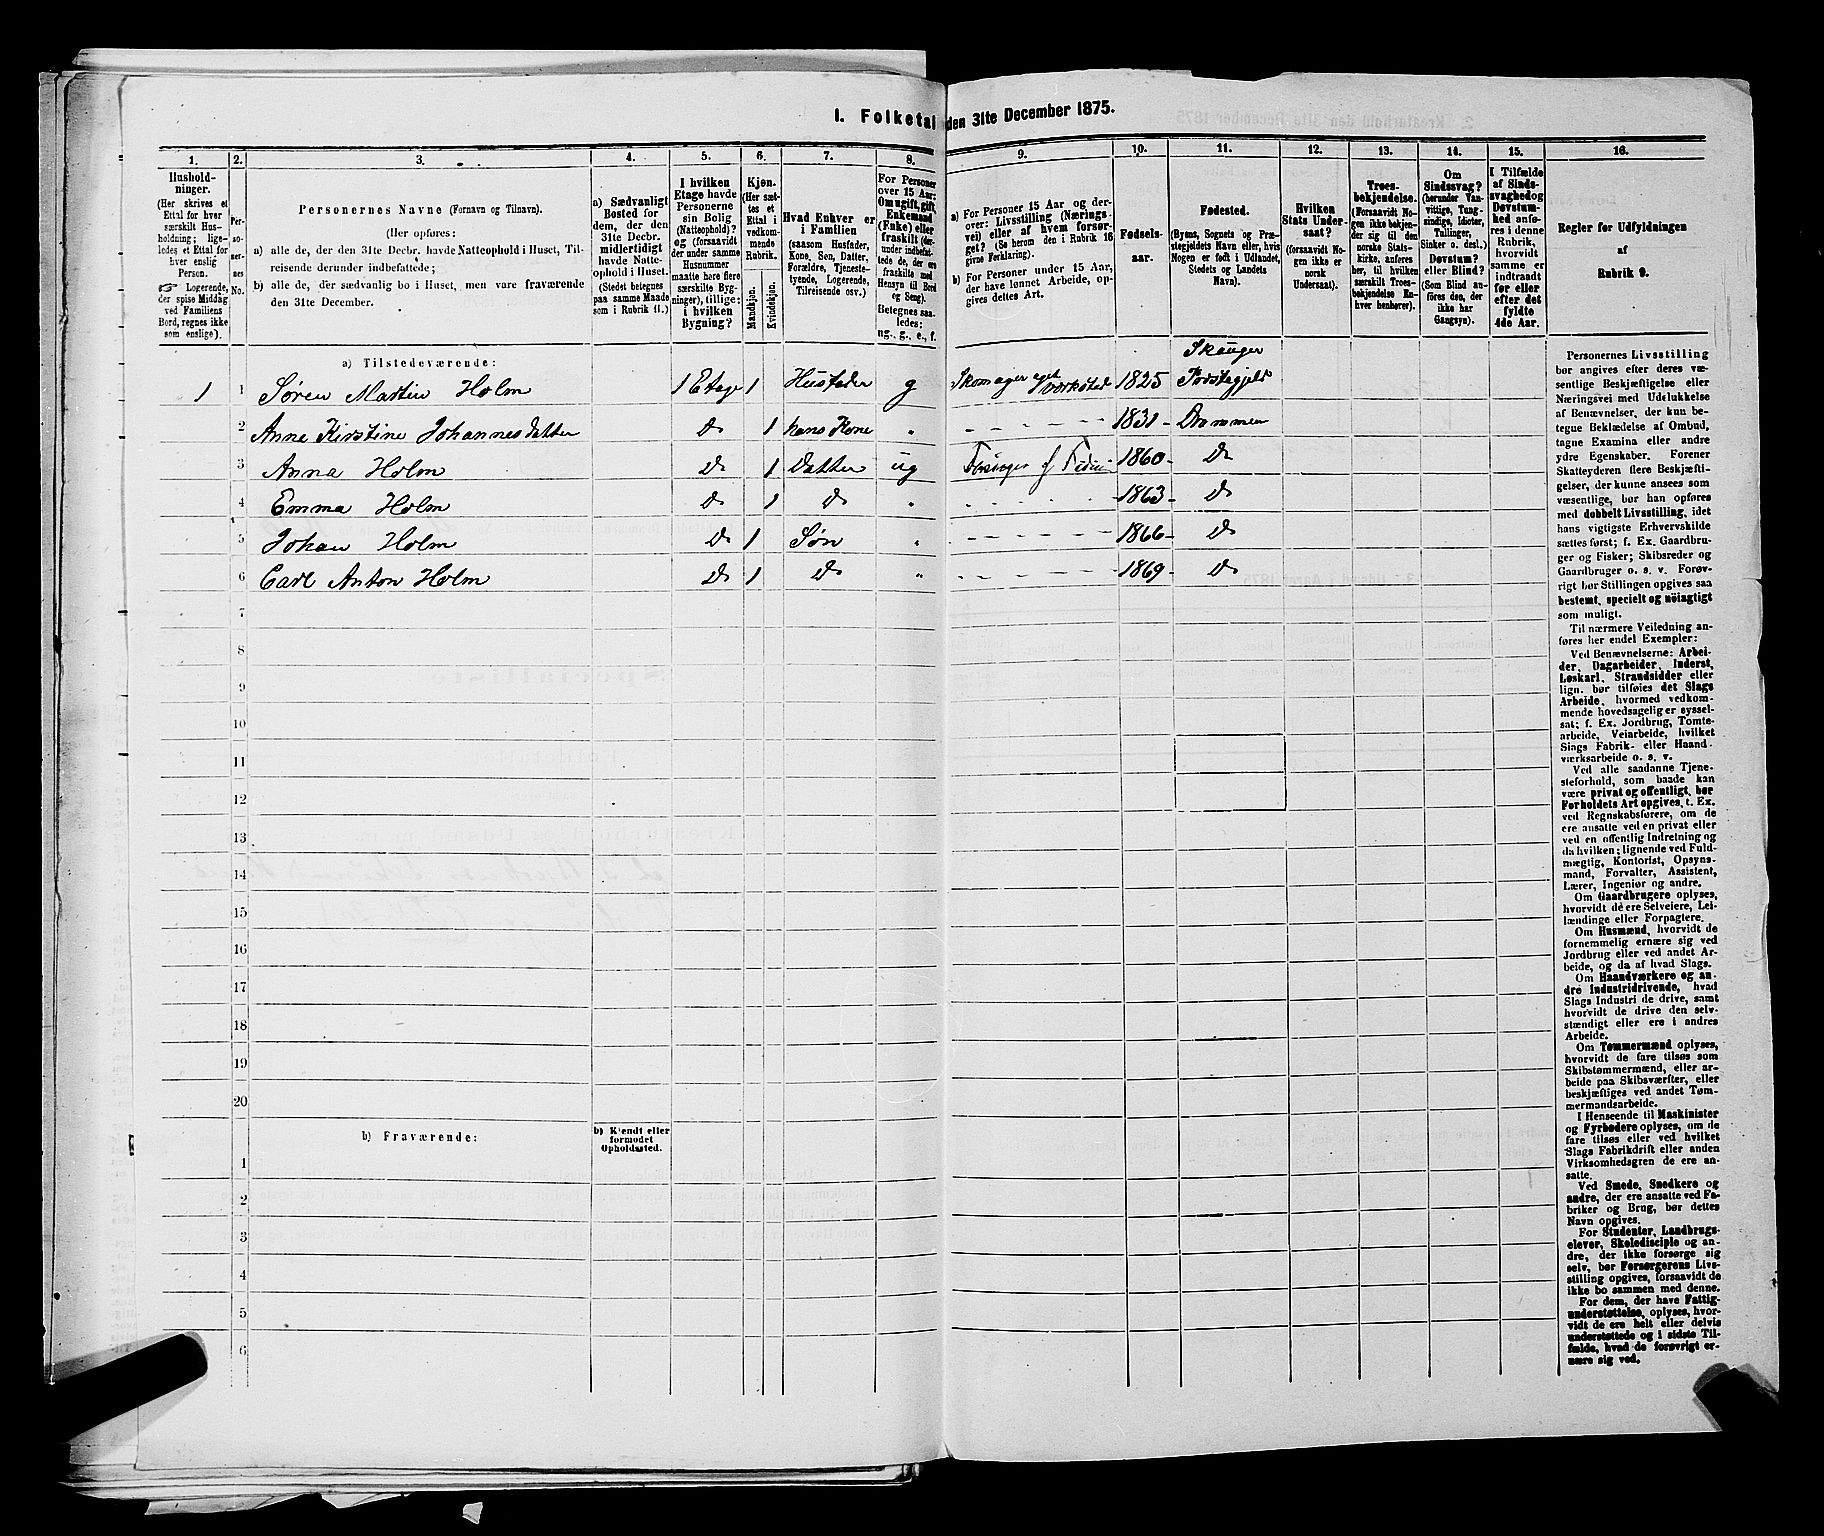 I. Folketal den 31te December 1875.
1. 2. 3. 4. 5. 6. 7. 8. 9. 10. 11. 12. 13. 14. 15. 16.
Hushold-
ninger.
(Her skrives et
Ettal for hver
særskilt Hus-
holdning; lige-
ledes et Ettal for
hver enslig
Person.
☞ Logerende,
der spise Middag
ved Familiens
Bord, regnes ikke
som enslige).
Per-
so-
ner-
nes
No.
Personernes Navne (Fornavn og Tilnavn).
(Her opføres:
a) alle de, der den 31te Decbr. havde Natteophold i Huset, Til-
reisende derunder indbefattede;
b) alle de, der sædvanlig bo i Huset, men vare fraværende
den 31te December.
a) Sædvanligt
Bosted for
dem, der den
31te Decbr.
midlertidigt
havde Natte-
ophold i Huset.
(Stedet betegnes
paa samme Maade
som i Rubrik 11.)
I hvilken
Etage havde
Personerne
sin Bolig
(Natteophold)?
og (forsaavidt
der under samme
Husnummer
maatte høre flere
særskilte Byg-
ninger), tillige:
i hvilken
Bygning?
Kjøn.
(Her sæt-
tes et
Ettal i
vedkom-
mende
Rubrik.
Mandkjøn.
Kvindekjøn.
Hvad Enhver er
i Familien
(saasom Husfader,
Kone, Søn, Datter,
Forældre, Tjeneste-
tyende, Logerende,
Tilreisende osv.)
For Personer
over 15 Aar:
Om ugift, gift,
Enkemand
(Enke) eller
fraskilt (der-
under indbefat-
tede de, der ere
fraskilte med
Hensyn til Bord
og Seng).
Betegnes saa-
ledes:
ug., g., e., f.
a) For Personer 15 Aar og der-
over: Livsstilling (Nærings-
vei) eller af hvem forsør-
get? (Se herom den i Rubrik 16
givne Forklaring).
b) For Personer under 15 Aar,
der have lønnet Arbeide, op-
gives dettes Art.
Fødsels-
aar.
Fødested.
(Byens, Sognets og Præ-
stegjeldets Navn eller, hvis
Nogen er født i Udlandet,
Stedets og Landets
Navn).
Hvilken
Stats Under-
saat?
(forsaavidt No-
gen ikke er
norsk
Undersaat).
Troes-
bekjendelse.
(Forsaavidt No-
gen ikke bekjen-
der sig til den
norske Stats-
kirke, anføres
her, til hvilken
særskilt Troes-
bekjendelse En-
hver henhører).
Om
Sindssvag?
(herunder Van-
vittige, Tung-
sindige, Idioter,
Tullinger,
Sinker o. desl.)
Døvstum?
eller Blind?
(Som Blind an-
føres den, der
ikke har
Gangsyn).
I Tilfælde
af Sinds-
svaghed og
Døvstum-
hed anfø-
res i denne
Rubrik,
hvorvidt
samme er
indtraadt
før eller
efter det
fyldte
4de Aar.
Regler for Udfyldningen
af
Rubrik 9.
a) Tilstedeværende:
Skauger
1 1 Søren Martin Holm 1 Etage 1 Husfader g Skomager eget værksted 1825 Præstegjeld
2 Anne Kirstine Johannesdatter Do 1 hans Kone " - - - - - 1831 - Drammen
3 Anna Holm Do 1 Datter ug 1860 - Do
4 Emma Holm Do 1 Do " - - - - 1863 - Do
5 Johan Holm Do 1 Søn " - - - - - 1866 - Do
6 Carl Anton Holm Do 1 Do " - - - - - 1869 - Do
7
8
9
10
11
12
13
14
15
16
17
18
19
20
b) Fraværende:
b) Kjendt eller
formodet
Opholdssted.
1
2
3
4
5
6
Personernes Livsstilling
bør angives efter deres væ-
sentlige Beskjæftigelse eller
Næringsvei med Udelukkelse
af Benævnelser, der kun be-
tegne Beklædelse af Ombud,
tagne Examina eller andre
ydre Egenskaber. Forener
Skatteyderen flere Beskjæfti-
gelser, der kunne ansees som
væsentlige, bør han opføres
med dobbelt Livsstilling, idet
hans vigtigste Erhvervskilde
sættes først; f. Ex. Gaardbru-
ger og Fisker; Skibsreder og
Gaardbruger o. s. v. Forøv-
rigt bør Stillingen opgives saa
bestemt, specielt og nöiagtigt
som muligt.
Til nærmere Veiledning an-
føres her endel Exempler:
Ved Benævnelserne: Arbei-
der, Dagarbeider, Inderst,
Løskarl, Strandsidder eller
lign. bør tilføies det Slags
Arbeide, hvormed vedkom-
mende hovedsagelig er syssel-
sat; f. Ex. Jordbrug, Tomte-
arbeide, Veiarbeide, hvilket
Slags Fabrik- eller Haand-
værksarbeide o. s. v.
Ved alle saadanne Tjene-
steforhold, som baade kan
være privat og offentligt, bør
Forholdets Art opgives, t. Ex.
ved Regnskabsførere, om de
ere ansatte ved en privat eller
ved en offentlig Indretning og
da hvilken; lignende ved Fuld-
mægtig, Kontorist, Opsyns-
mand, Forvalter, Assistent,
Lærer, Ingeniør og andre.
Om Gaardbrugere oplyses,
hvorvidt de ere Selveiere, Lei-
lændinge eller Forpagtere.
Om Husmænd, hvorvidt de
fornemmelig ernære sig ved
Jordbrug eller ved andet Ar-
beide, og da af hvad Slags.
Om Haandværkere og an-
dre Industridrivende, hvad
Slags Industri de drive, samt
hvorvidt de drive den selv-
stændigt eller ere i andres
Arbeide.
Om Tømmermænd oplyses,
hvorvidt de fare tilsøs som
Skibstømmermænd, eller ar-
beide paa Skibsværfter, eller
beskjæftiges ved andet Tøm-
mermandsarbeide.
I Henseende til Maskinister
og Fyrbødere oplyses, om de
fare tilsøs eller ved hvilket
Slags Fabrikdrift eller anden
Virksomhedsgren de ere an-
satte.
Ved Smede, Snedkere og
andre, der ere ansatte ved Fa-
briker og Brug, bør dettes
Navn opgives.
For Studenter, Landbrugs-
elever, Skoledisciple og an-
dre, der ikke forsørge sig
selv, bør Forsørgerens Livs-
stilling opgives, forsaavidt de
ikke bo sammen med denne.
For dem, der have Fattig-
understøttelse, oplyses, hvor-
vidt de ere helt eller delvis
understøttede og i sidste Til-
fælde, hvad de forøvrigt er-
nære sig ved.